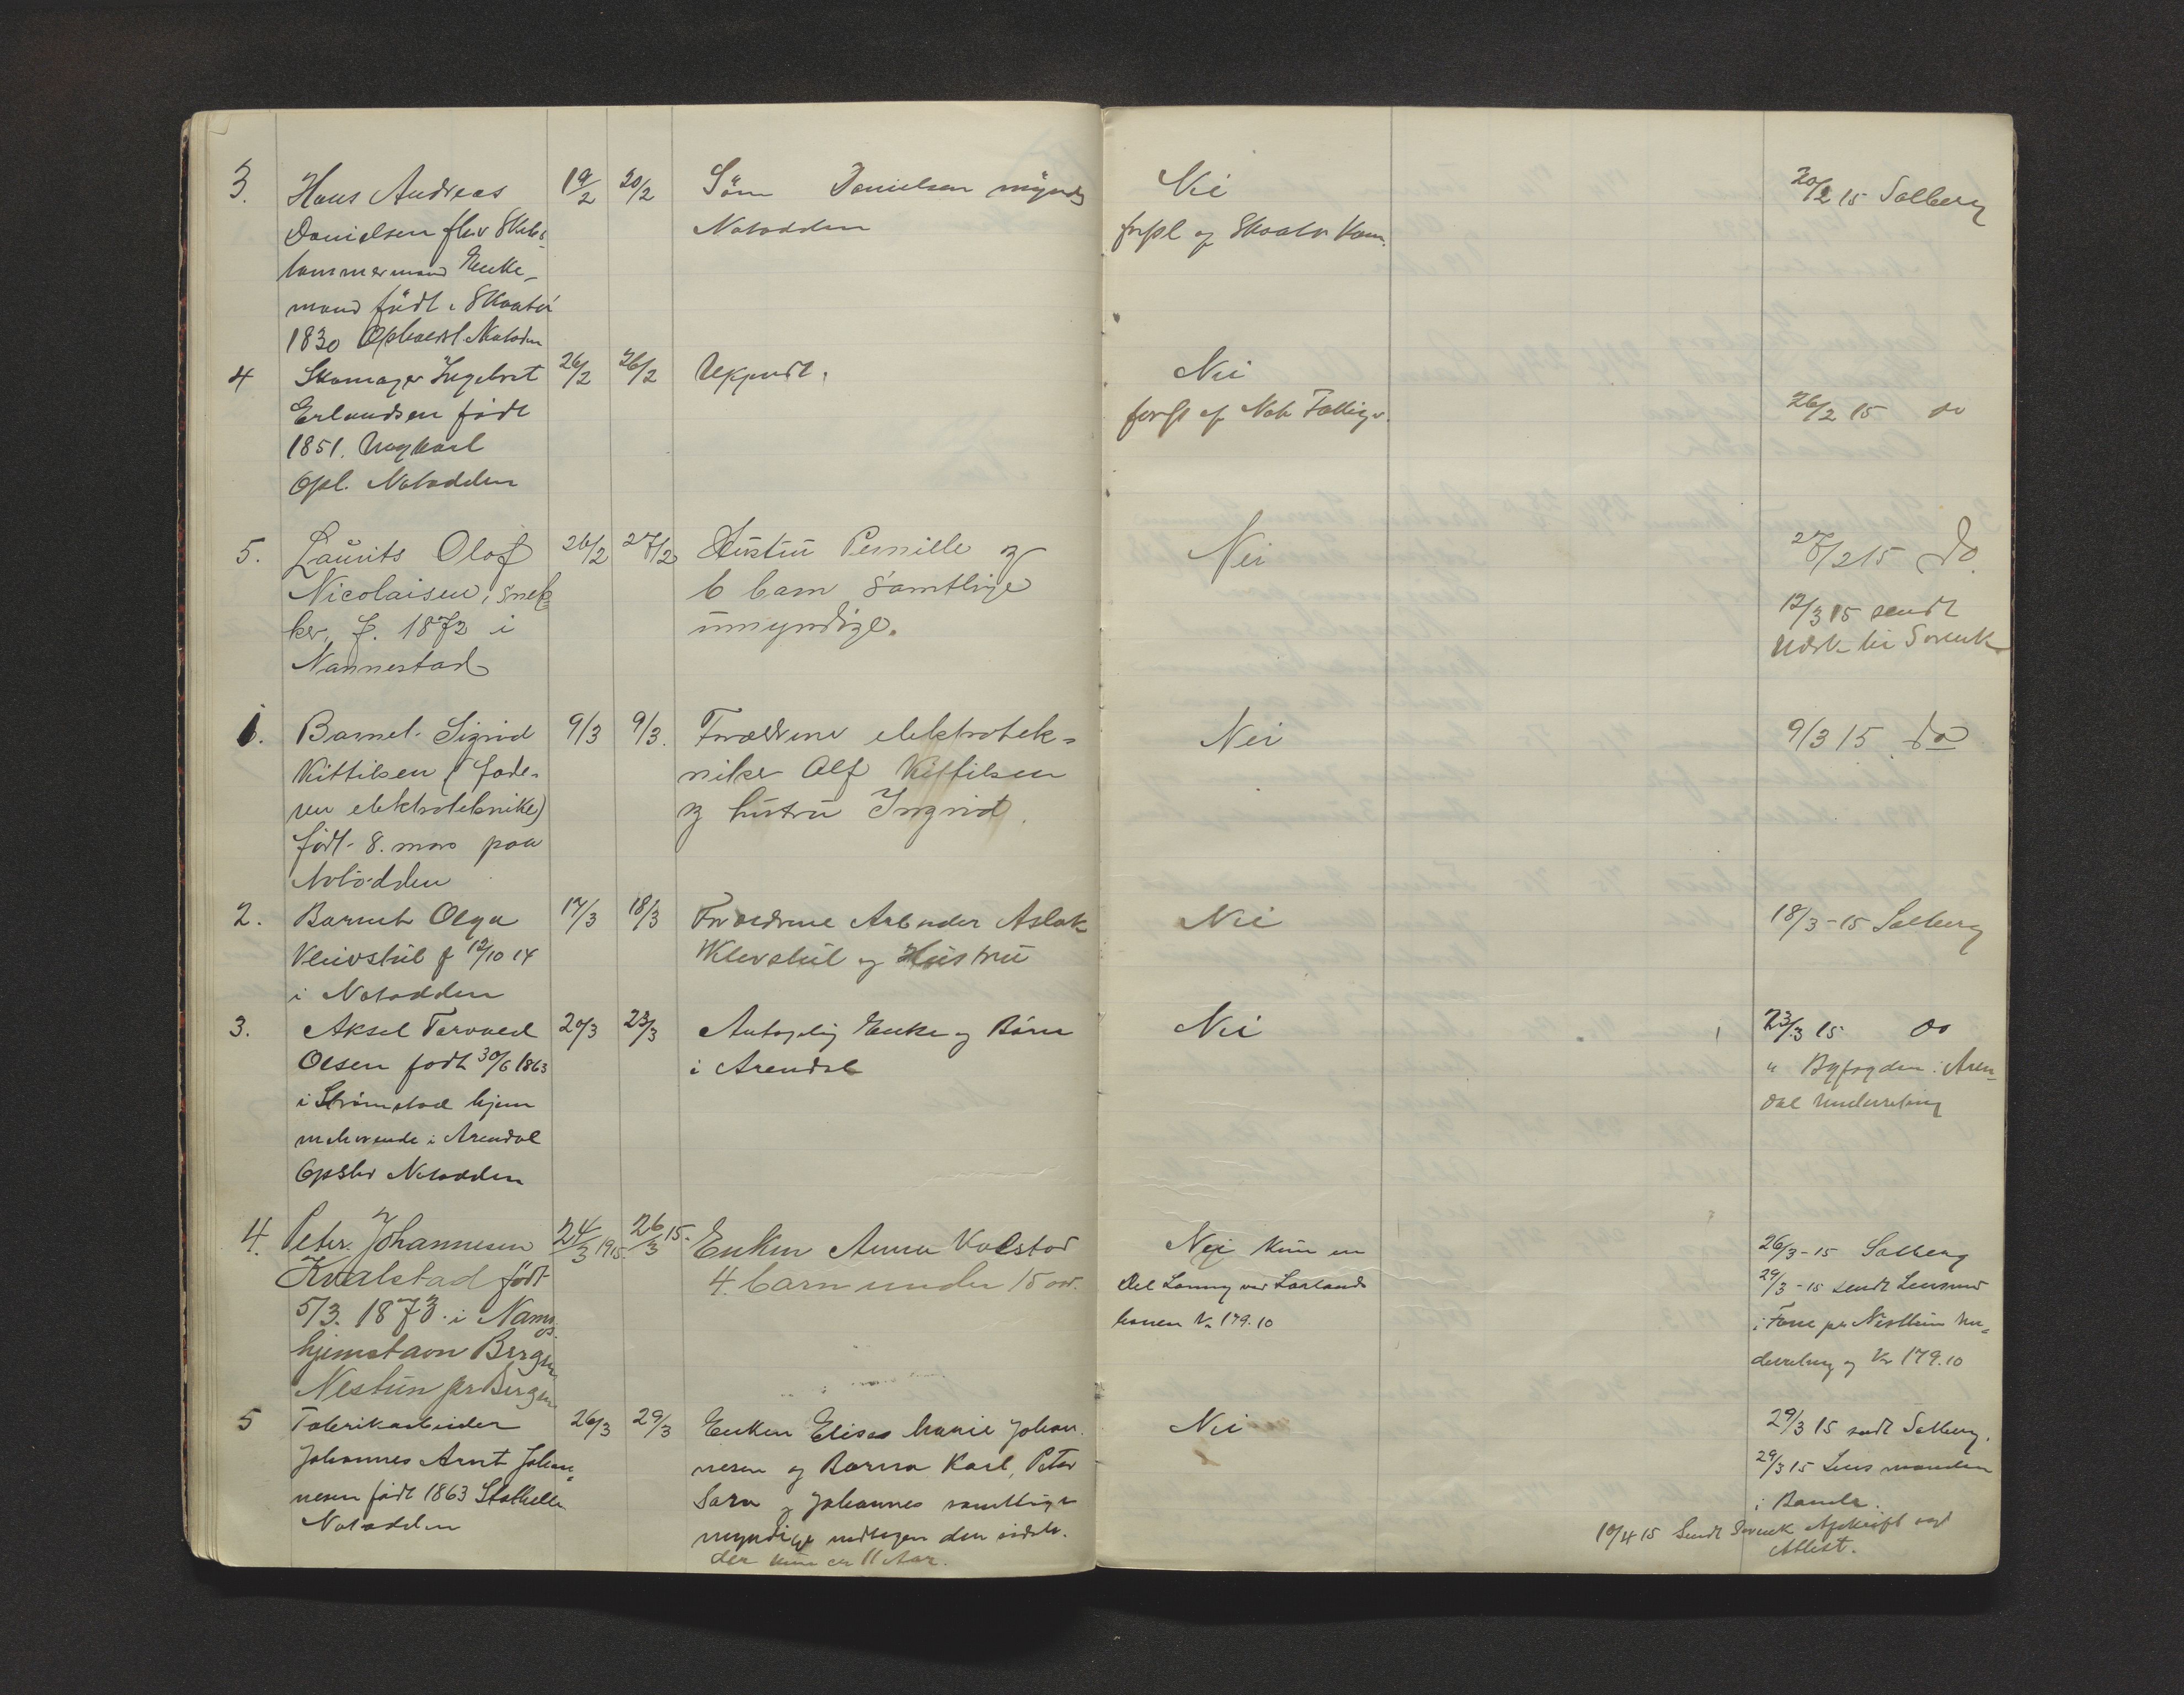 3. Hans Andreas 19/2 20/2 Søn Danielsen myndig Nei 20/2 15 Solberg
Danielsen fhv Skibs- Notodden forpl af Skaatø Kom.
tømmermand Enke-
mand født i Skaatø
1830 Opholdst. Notodden
4 Skomager Ingebret 26/2 26/2 Ukjendt. Nei
Erlandsen født forpl af Not. Fattigv. 26/2 15 do
1851. Ungkarl
Opl. Notodden
5. Laurits Olof 26/2 27/2 Hustru Pernille og Nei 27/2 15 do.
Nicolaisen, snek- 6 barn samtlige 12/3 15 sendt
ker, f. 1872 i umyndige. Udsk. til Sorensk
Nannestad
1. Barnet Sigrid 9/3 9/3. Forældrene elektrotek- Nei 9/3 15 do
Kittilsen (fade- niker Alf Kittilsen
ren elektrotekniker) og hustru Ingrid.
født 8. mars paa
Notodden
2. Barnet Olga 17/3 18/3 Forældrene Arbeider Aslak Nei 18/3-15 Solberg
Kleivstul f 12/10 14 Klevstul og Hustru
i Notodden
3. Aksel Torvald 20/3 23/3 Antagelig Enke og Børn Nei 23/3 15 do
Olsen født 30/6 1863 i Arendal " Byfogden i Aren-
i Strömstad hjem dal Underretning
mehørende i Arendal
Opslev Notodden
4. Peter Johannesen 24/3 1915. 26/3 15. Enken Anna Kvalstad Nei Kun en 26/3-15 Solberg
Kvalstad født 4 barn under 15 aar. Del Lønning ved 29/3-15 sendt Lensmd
5/3. 1873 i Namsos. Kr 179.10 i Fane pr Nesttun Un-
hjemstavn Bergen derretning og Kr 179.10
Nestun pr Bergen
5 Fabrikarbeider 26/3 29/3 Enken Elise Marie Johan- Nei 29/3 15 sendt Solberg.
Johannes Arnt Johan- nesen og Barna Karl, Peter 29/3 15 Lensmanden
nesen født 1863 Stathelle Sara og Johannes samtlige i Bamle.
Notodden myndige undtagen den sidste. 10/4 15 Sendt Sorensk Afskrift ved
der kun er 11 Aar. Attest.